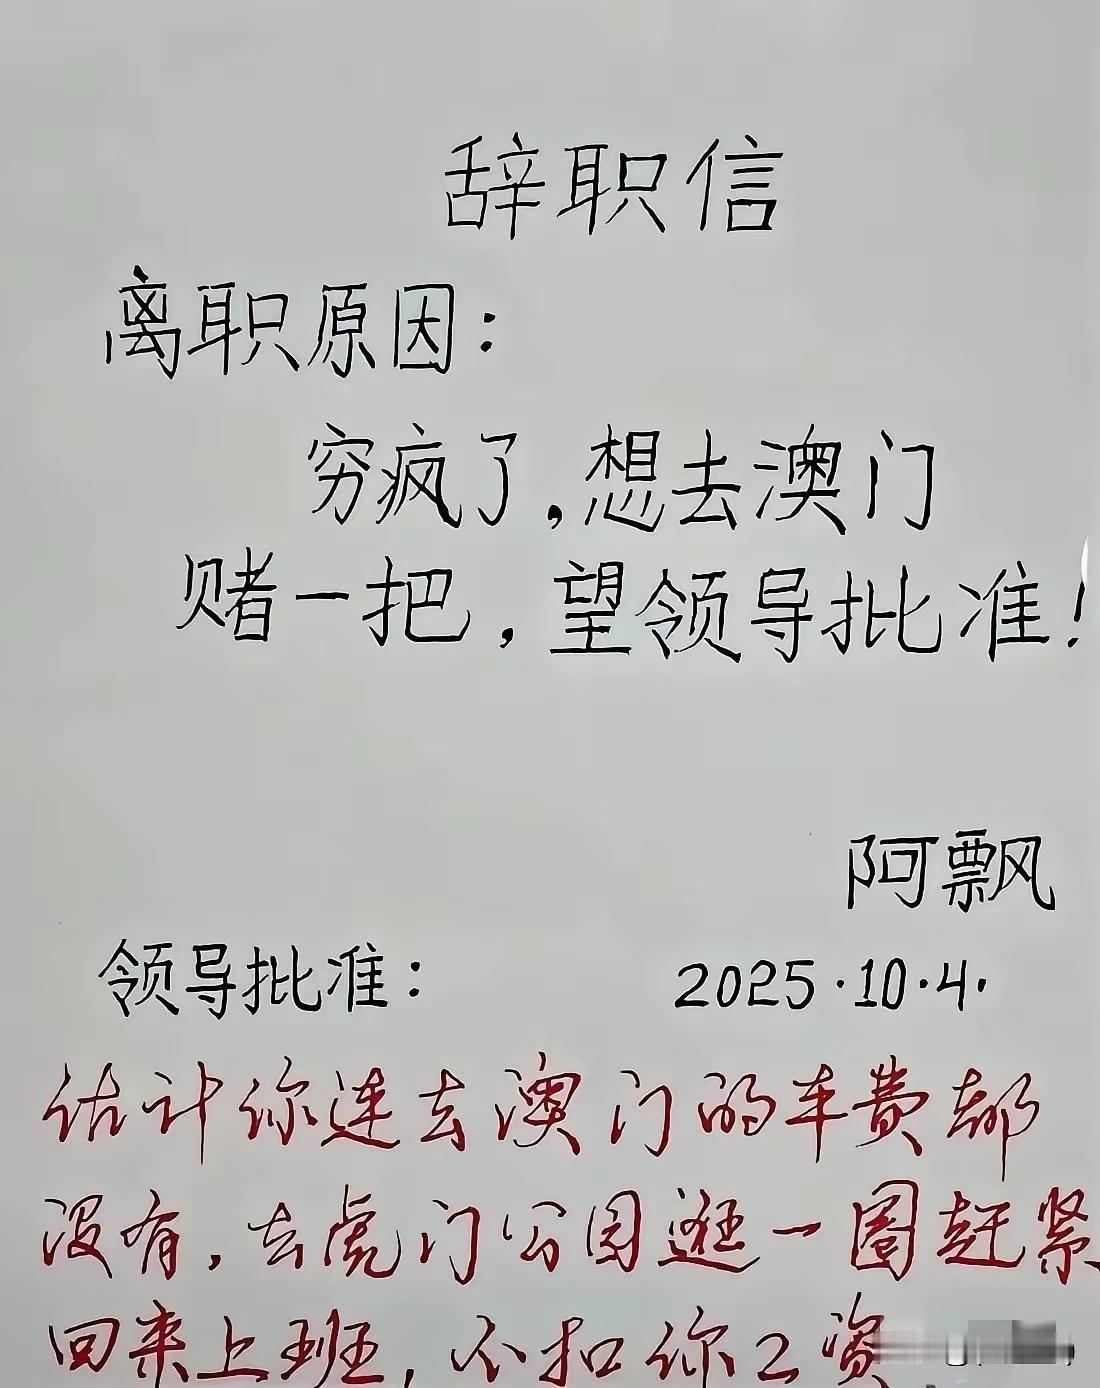 辞职信
离职原因：
穷疯了，想去澳门
赌一把，望领导批准！
阿飘
领导批准： 2025·10·4.
估计你连去澳门的车费都
没有，去虎门公园逛一圈赶紧
回来上班，不扣你工资